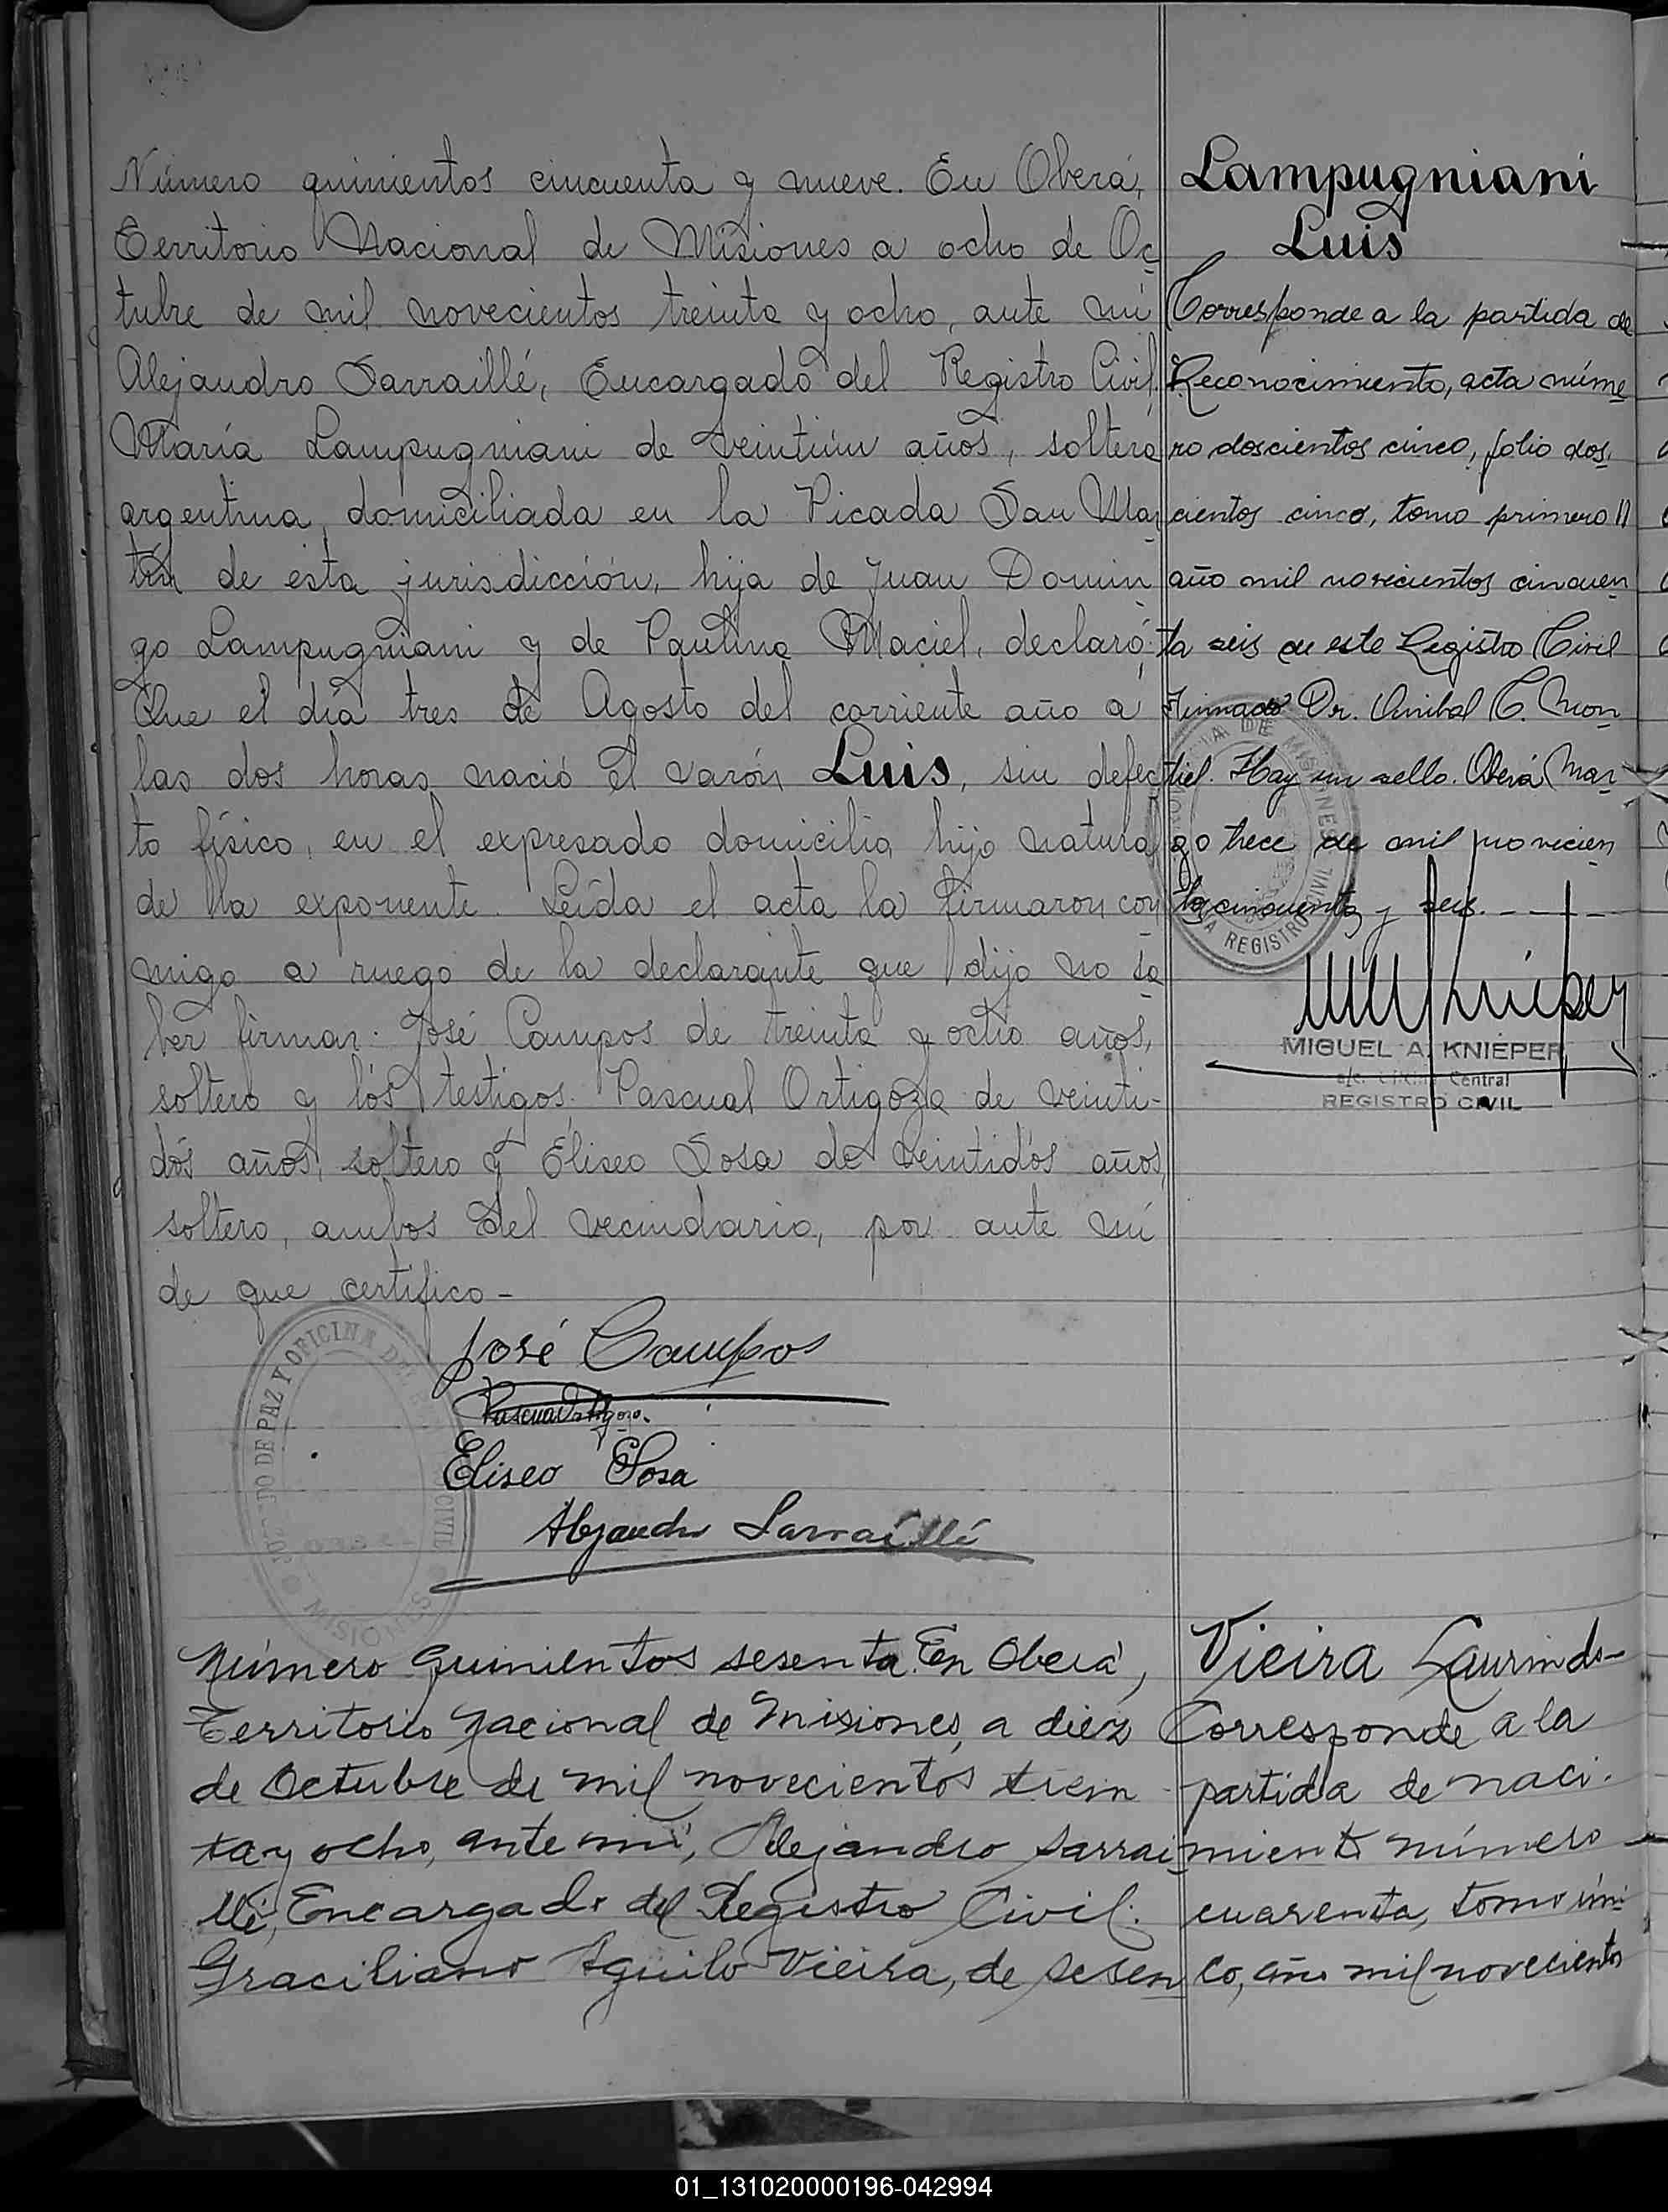 Número quinientos cincuenta y nueve. En Oberá,
Territorio Nacional de Misiones a ocho de Oc
tubre de mil novecientos treinta y ocho, ante mi
Alejandro Sarraillé, Encargado del Registro Civil
María Lampugniani de veintiún años, soltera
argentina, domiciliada en la Picada San Mar
tín de esta jurisdicción, hija de Juan Domin
go Lampugniani y de Paulina Maciel, declaró:
Que el día tres de Agosto del corriente año a
las dos horas nació el varón Luis, sin defec
to físico, en el expresado domicilio, hijo natural
de la exponente. Leída el acta la firmaron con
migo a ruego de la declarante que dijo no sa
ber firmar: José Campos de treinta y ocho años,
soltero y los testigos: Pascual Ortigoza de veinti-
dós años, soltero y Eliseo Sosa de veintidós años,
soltero, ambos del vecindario, por ante mí
de que certifico -
José Campos
Pascual Ortigoza.
Eliseo Sosa
Alejandro Sarraillé
JUZGADO DE PAZ Y OFICINA DE REGISTRO CIVIL
MISIONES
Lampugniani
Luis
Corresponde a la partida de
Reconocimiento, acta núme
ro doscientos cinco, folio dos
cientos cinco, tomo primero
año mil novecientos cincuen
ta seis de este Registro Civil
Firmado Dr. Anibal C. Mon
tiel. Hay un sello. Oberá, Mar
zo trece de mil novecien
tos cincuenta y seis. - - - -
REGISTRO CIVIL
MIGUEL A. KNIEPER
a/c. Oficina Central
REGISTRO CIVIL
Número quinientos sesenta. En Oberá,
Territorio Nacional de Misiones, a diez
de Octubre de mil novecientos trein
ta y ocho, ante mí, Alejandro Sarrai
llé, Encargado del Registro Civil:
Graciliano Aguilo Vieira, de sesen
Vieira Laurindo-
Corresponde a la
partida de naci-
miento número
cuarenta, tomo úni
co, año mil novecientos
01_131020000196-042994